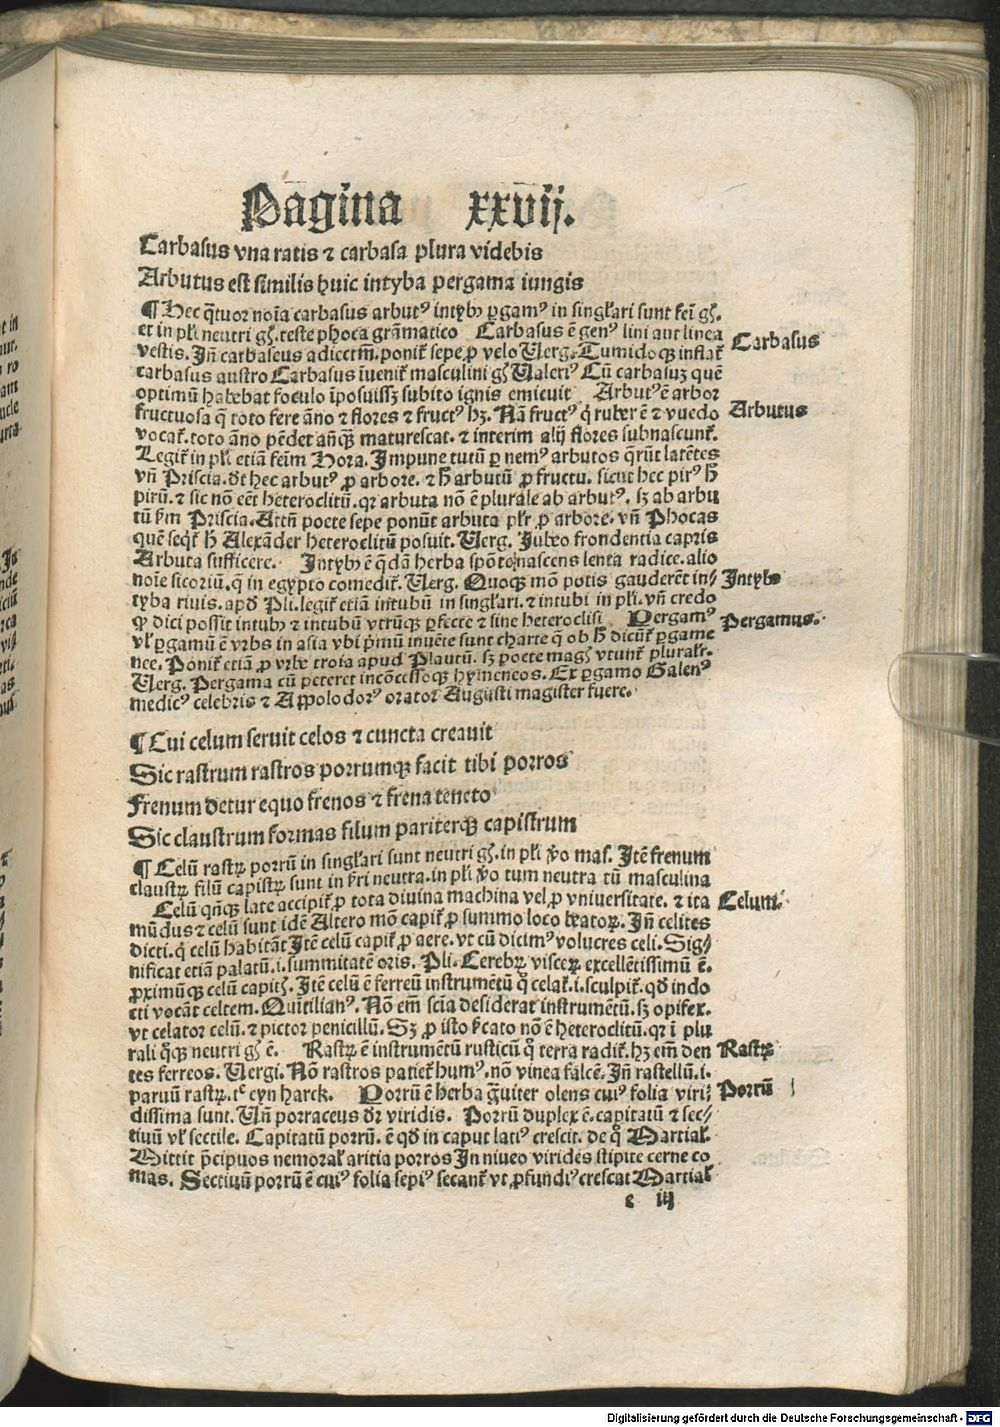 Pagina xxvij.
Carbasus vna ratis ⁊ carbasa plura videbis
Arbutus est similis huic intyba pergama iungis
¶ Hec q̃tuor noĩa carbasus arbutꝰ intybꝰ ꝑgamꝰ in singl'ari sunt fem̃ gñ.
et in pl'i neutri gñ. teste phoca grãmatico Carbasus ẽ genꝰ lini aut linea
vestis. Jñ carbaseus adiectm̃. ponit̃ sepe ꝓ velo Verg. Tumidoqꝫ inflat̃
carbasus austro Carbasus ĩuenit̃ masculini gñ Valeriꝰ Cũ carbasuꝫ quẽ
optimũ habebat foculo ĩposuissꝫ subito ignis emicuit Arbutꝰ ẽ arbor
fructuosa q̃ toto fere ãno ⁊ flores ⁊ fructꝰ hꝫ. Nã fructꝰ q̃ ruber ẽ ⁊ vuedo
vocat̃. toto ãno pẽdet añq̃ꝫ maturescat. ⁊ interim alij flores subnascunt̃.
Legit̃ in pl'i etiã fem̃ Hora. Jmpune tutũ ꝑ nemꝰ arbutos q̃rũt latẽtes
vñ Priscia. dt̃ hec arbutꝰ ꝓ arbore. ⁊ h̃ arbutũ ꝓ fructu. sicut hec pirꝰ h̃
pirũ. ⁊ sic nõ eẽt heteroclitũ. qꝛ arbuta nõ ẽ plurale ab arbutꝰ. sꝫ ab arbu
tũ ẜm Priscia. Attñ poete sepe ponũt arbuta pl'r ꝓ arbore. vñ Phocas
quẽ seqt̃ h̃ Alexãder heteroclitũ posuit. Verg. Jubeo frondentia capris
Arbuta sufficere. Jntybꝰ ẽ q̃dã herba spõte nascens lenta radice. alio
noĩe sicoriũ. q̃ in egypto comedit̃. Verg. Quoqꝫ mõ potis gauderẽt in⸗
tyba riuis. apd̃ Pli. legit̃ etiã intubũ in singl'ari. ⁊ intubi in pl'i. vñ credo
ꝙ dici possit intubꝰ ⁊ intubũ vtrũqꝫ ꝑfecte ⁊ sine heteroclisi Pergamꝰ
vl' ꝑgamũ ẽ vrbs in asia vbi p̃mũ inuẽte sunt charte q̃ ob h̃ dicũt̃ ꝑgame
nee. Ponit̃ etiã ꝓ vrbe troia apud Plautũ. sꝫ poete magꝭ vtunt̃ plural'r.
Verg. Pergama cũ peteret incõcessosqꝫ hymeneos. Ex ꝑgamo Galenꝰ
medicꝰ celebris ⁊ Appolodorꝰ orator Augusti magister fuere.
Carbasus
Arbutus
Jntybꝰ
Pergamus.
¶ Cui celum seruit celos ⁊ cuncta creauit
Sic rastrum rastros porrumqꝫ facit tibi porros
Frenum detur equo frenos ⁊ frena teneto
Sic claustrum formas filum pariterqꝫ capistrum
¶ Celũ rastrꝝ porrũ in singl'ari sunt neutri gñ. in pl'i ꝟo mas. Jtẽ frenum
claustrꝝ filũ capistrꝝ sunt in ẜri neutra. in pl'i ꝟo tum neutra tũ masculina
Celũ qñqꝫ late accipit̃ ꝓ tota diuina machina vel ꝓ vniuersitate. ⁊ ita
mũdus ⁊ celũ sunt idẽ Altero mõ capit̃ ꝓ summo loco beatoꝝ. Jñ celites
dicti. q̃ celũ habitãt Jtẽ celũ capit̃ ꝓ aere. vt cũ dicimꝰ volucres celi. Sig⸗
nificat etiã palatũ. i. summitatẽ oris. Pli. Cerebꝝ visceꝝ excellẽtissimũ ẽ.
ꝓximũqꝫ celũ capitꝭ. Jtẽ celũ ẽ ferreũ instrumẽtũ q̊ celat̃. i. sculpit̃. qd̃ indo
cti vocãt celtem. Quintilianꝰ. Nõ em̃ scĩa desiderat instrumẽtũ. sꝫ opifex.
vt celator celũ. ⁊ pictor penicillũ. Sꝫ ꝓ isto ẜcato nõ ẽ heteroclitũ. qꝛ ĩ plu
rali q̃qꝫ neutri gñ ẽ. Rastrꝝ ẽ instrumẽtũ rusticũ q̊ terra radit̃. hꝫ em̃ den
tes ferreos. Vergi. Nõ rastros patiet̃ humꝰ. nõ vinea falcẽ. Jñ rastellũ. i.
paruũ rastrꝝ. tc̃ eyn harck. Porrũ ẽ herba g̃uiter olens cuiꝰ folia viri⸗
dissima sunt. Vñ porraceus dr̃ viridis. Porrũ duplex ẽ. capitatũ ⁊ sec⸗
tiuũ vl' sectile. Capitatũ porrũ. ẽ qd̃ in caput latiꝰ crescit. de q̊ Martial'.
Mittit p̃cipuos nemoral' aritia porros Jn niueo virides stipite cerne co
mas. Sectiuũ porrũ ẽ cuiꝰ folia sepiꝰ secant̃ vt ꝓfundiꝰ crescat Martial'
Celum.
Rastrꝝ
Porrũ
e iij
Digitalisierung gefördert durch die Deutsche Forschungsgemeinschaft - DFG